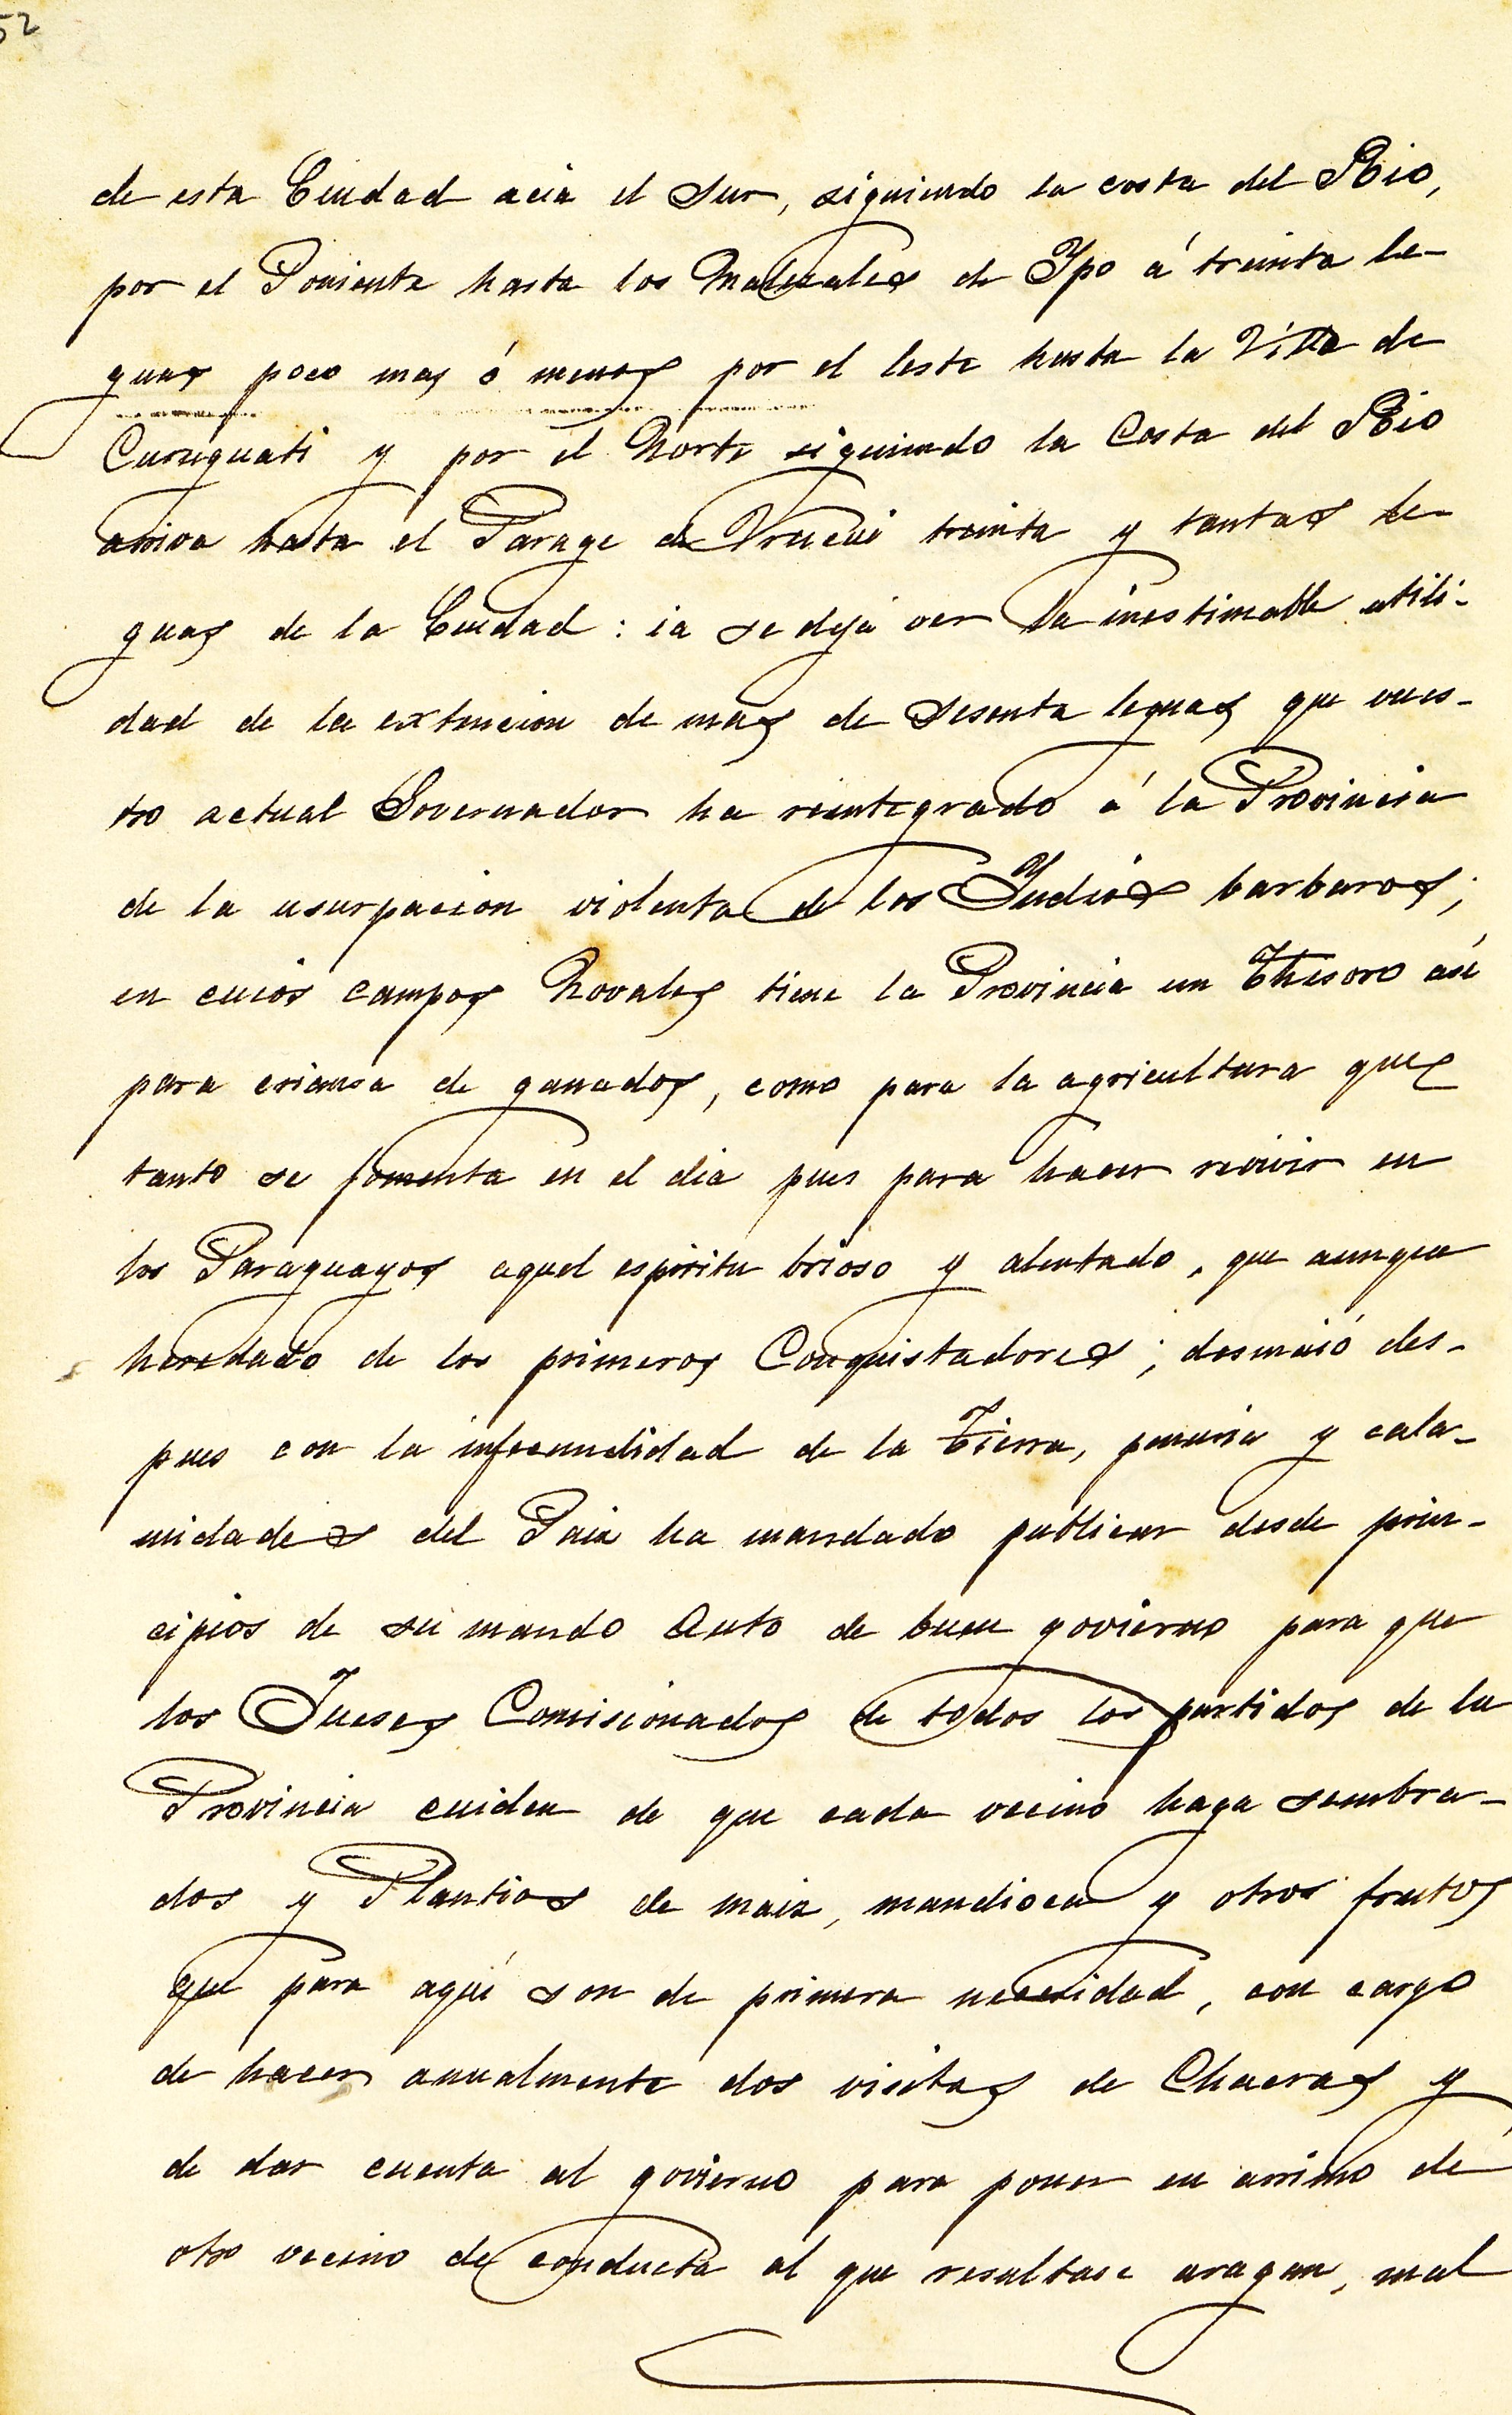 52
de esta Ciudad acia el Sur, siguiendo la costa del Rio,
por el Poniente hasta los de Ypo á treinta le-
guas poco mas ó menos por el leste hasta la Villa de
Curuguati y por el Norte siguiendo la Costa del Rio
arriva hasta el Parage de treinta y tantas le-
guas de la Ciudad : ia se deja ver la inestimable utili-
dad de la extencion de mas de sesenta leguas que vues-
tro actual Governador ha reintegrado á la Provincia
de la usurpacion violenta de los Yndios barbaros;
en cuios campos Novales tiene la Provincia un Thesoro asi
para criansa de ganados, como para la agricultura que
tanto se fomenta en el dia pues para hacer revivir en
los Paraguayos aquel espiritu brioso y alentado, que aunque
heredado de los primeros Conquistadores; desmaió des-
pues con la infecundidad de la Tierra, penuria y cala-
midades del Paiz ha mandado publicar desde prin-
cipios de su mando Auto de buen govierno para que
los Jueses Comisionados de todos los partidos de la
Provincia cuiden de que cada vecino haga sembra-
dos y Plantios de maiz, mandioca y otros frutos
que para aqui son de primera necesidad, con cargo
de hacer anualmente dos visitas de Chacras y
de dar cuenta al govierno para poner en arrimo de
otro vecino de conducta al que resultase aragan, mal